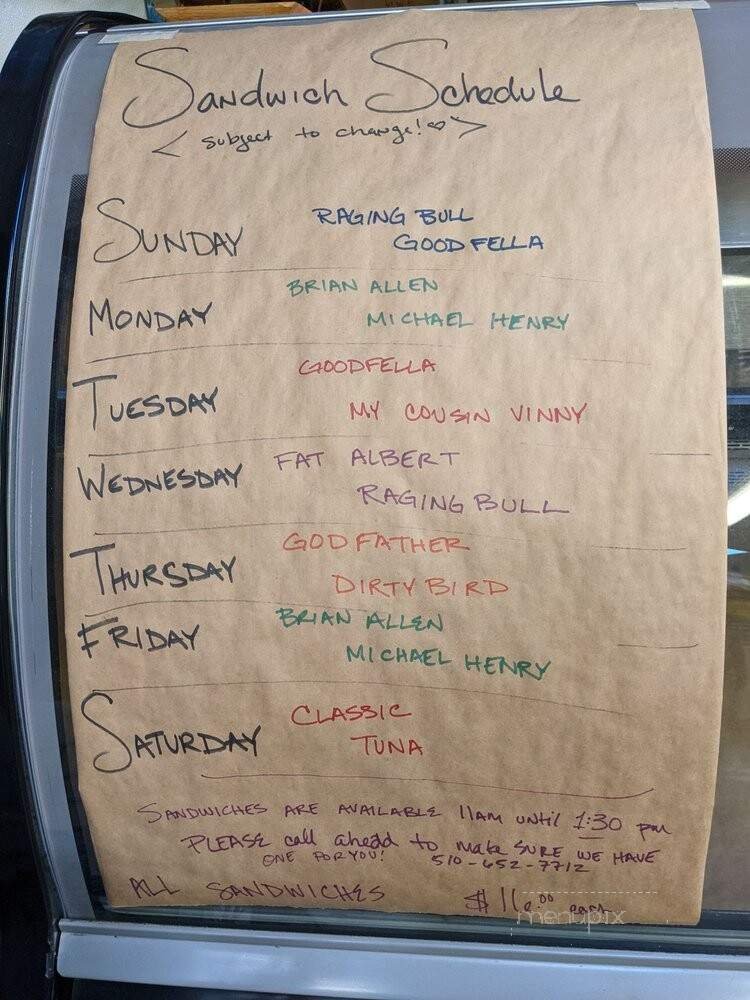 Sandwich Schedule
< subject to change! ♡ >
SUNDAY
RAGING BULL
GOODFELLA
MONDAY
BRIAN ALLEN
MICHAEL HENRY
TUESDAY
GOODFELLA
MY COUSIN VINNY
WEDNESDAY
FAT ALBERT
RAGING BULL
THURSDAY
GODFATHER
DIRTY BIRD
FRIDAY
BRIAN ALLEN
MICHAEL HENRY
SATURDAY
CLASSIC
TUNA
SANDWICHES ARE AVAILABLE 11AM UNTIL 1:30 pm
PLEASE call ahead to make SURE WE HAVE
ONE FOR YOU! 510-652-7712
ALL SANDWICHES $16.00 each
menupix